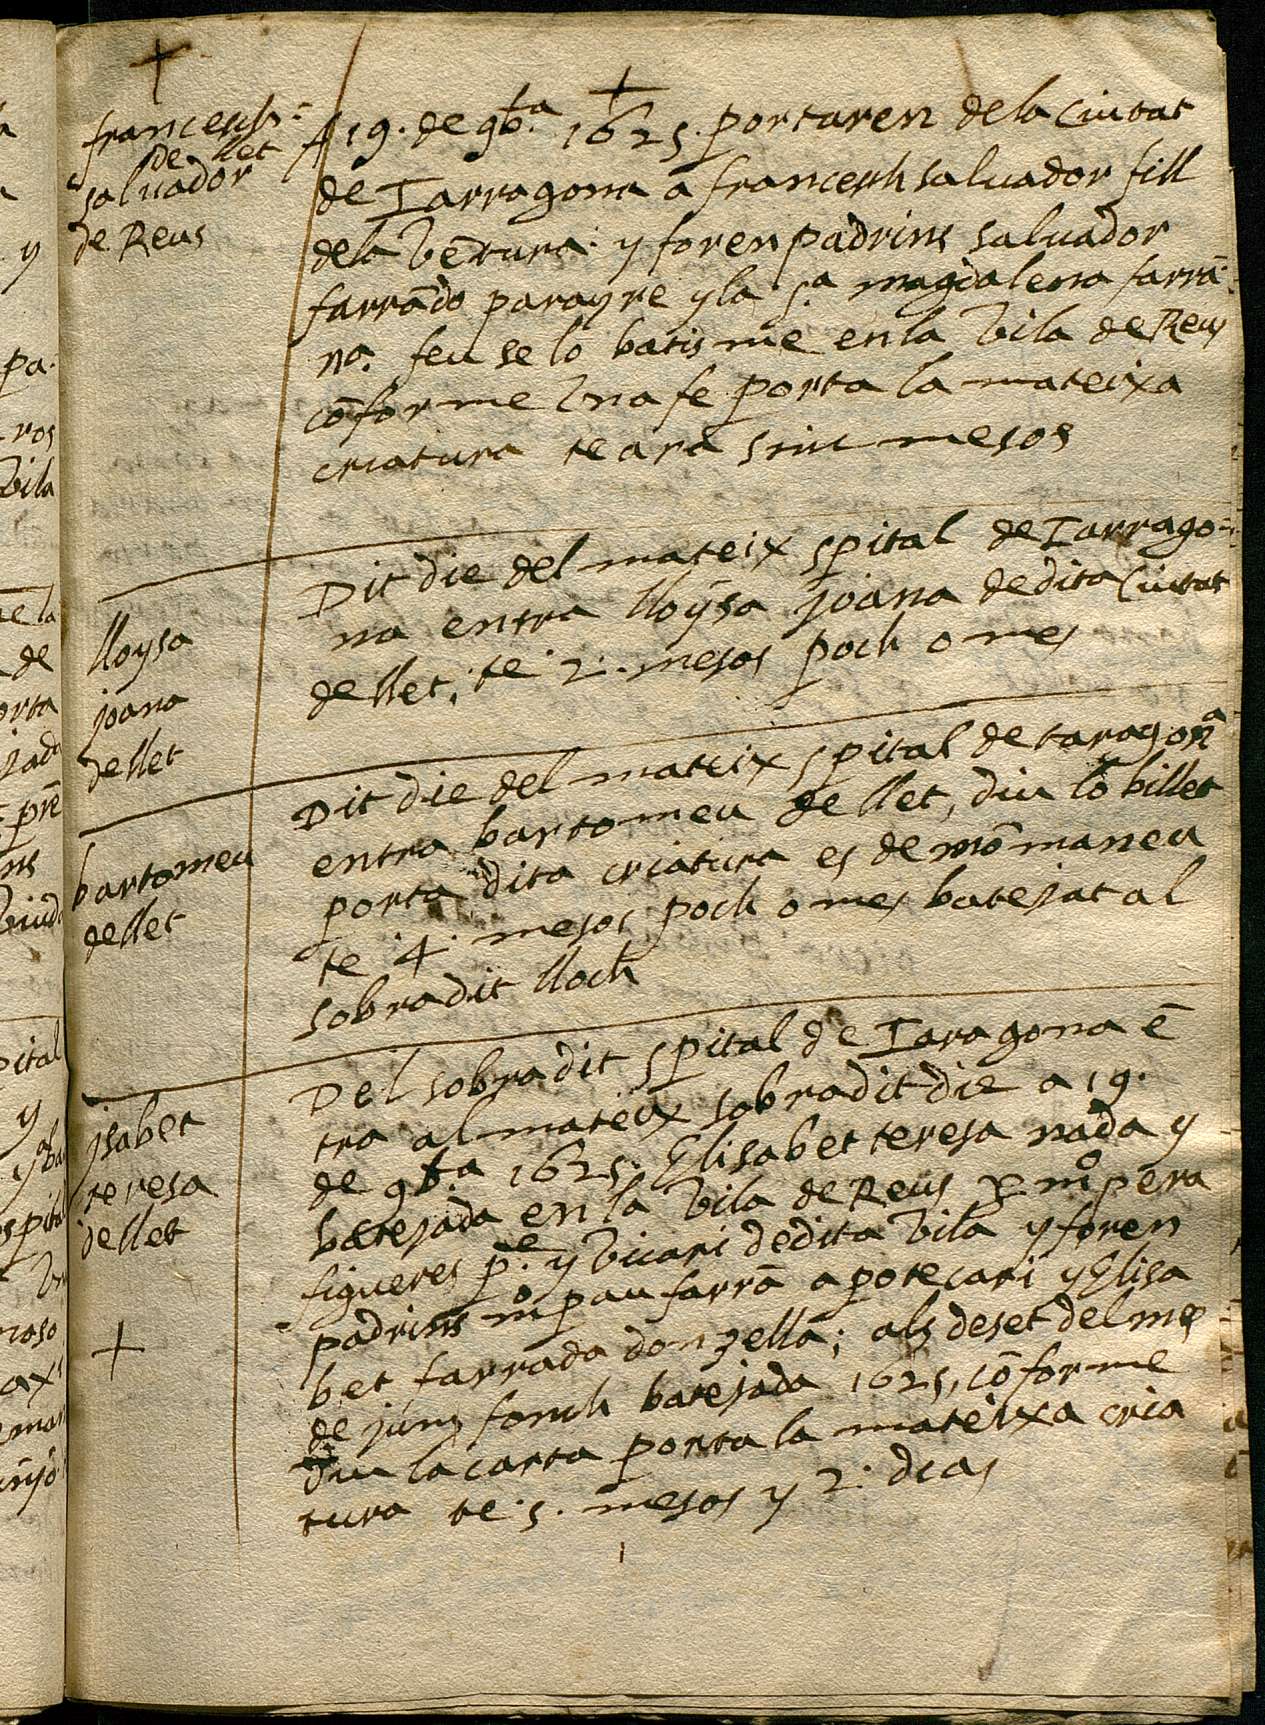 francesch
de llet
salvador
de Reus
A 19. de 9b.ª 1625. portaren de la Ciutat
de Tarragona a francesch salvador fill
dela Vẽtura. y foren padrins salvador
farrãdo parayre y la S.ª magdalena farrã
na. feu se lo batisme en la Vila de Reus
cõforme Una fe porta la mateixa
criatura te ara sinc mesos
lloysa
joana
de llet
Dit die del mateix spital de Tarrago=
na entra lloysa joana de dita Ciutat
de llet, te 2. mesos poch o mes
bartomeu
de llet
Dit die del mateix spital de taragonª
entra bartomeu de llet, diu lo billet
porta dita criatura es de mõmaneu
te 4. mesos poch o mes batejat al
sobradit lloch
jsabet
teresa
de llet
Del sobradit spital de Taragona ẽ
tra al mateix sobradit die a 19.
de 9b.ª 1625. Elisabet teresa nada y
batejada en la Vila de Reus per mº pera
figueres p.e y Vicari de dita Vila y foren
padrins mº pau farrã apotecari y Elisa
bet farrada donzella; als deset del mes
de juny fonch batejada 1625, cõforme
diu la carta porta la mateixa cria
tura te 5. mesos y 2. dias